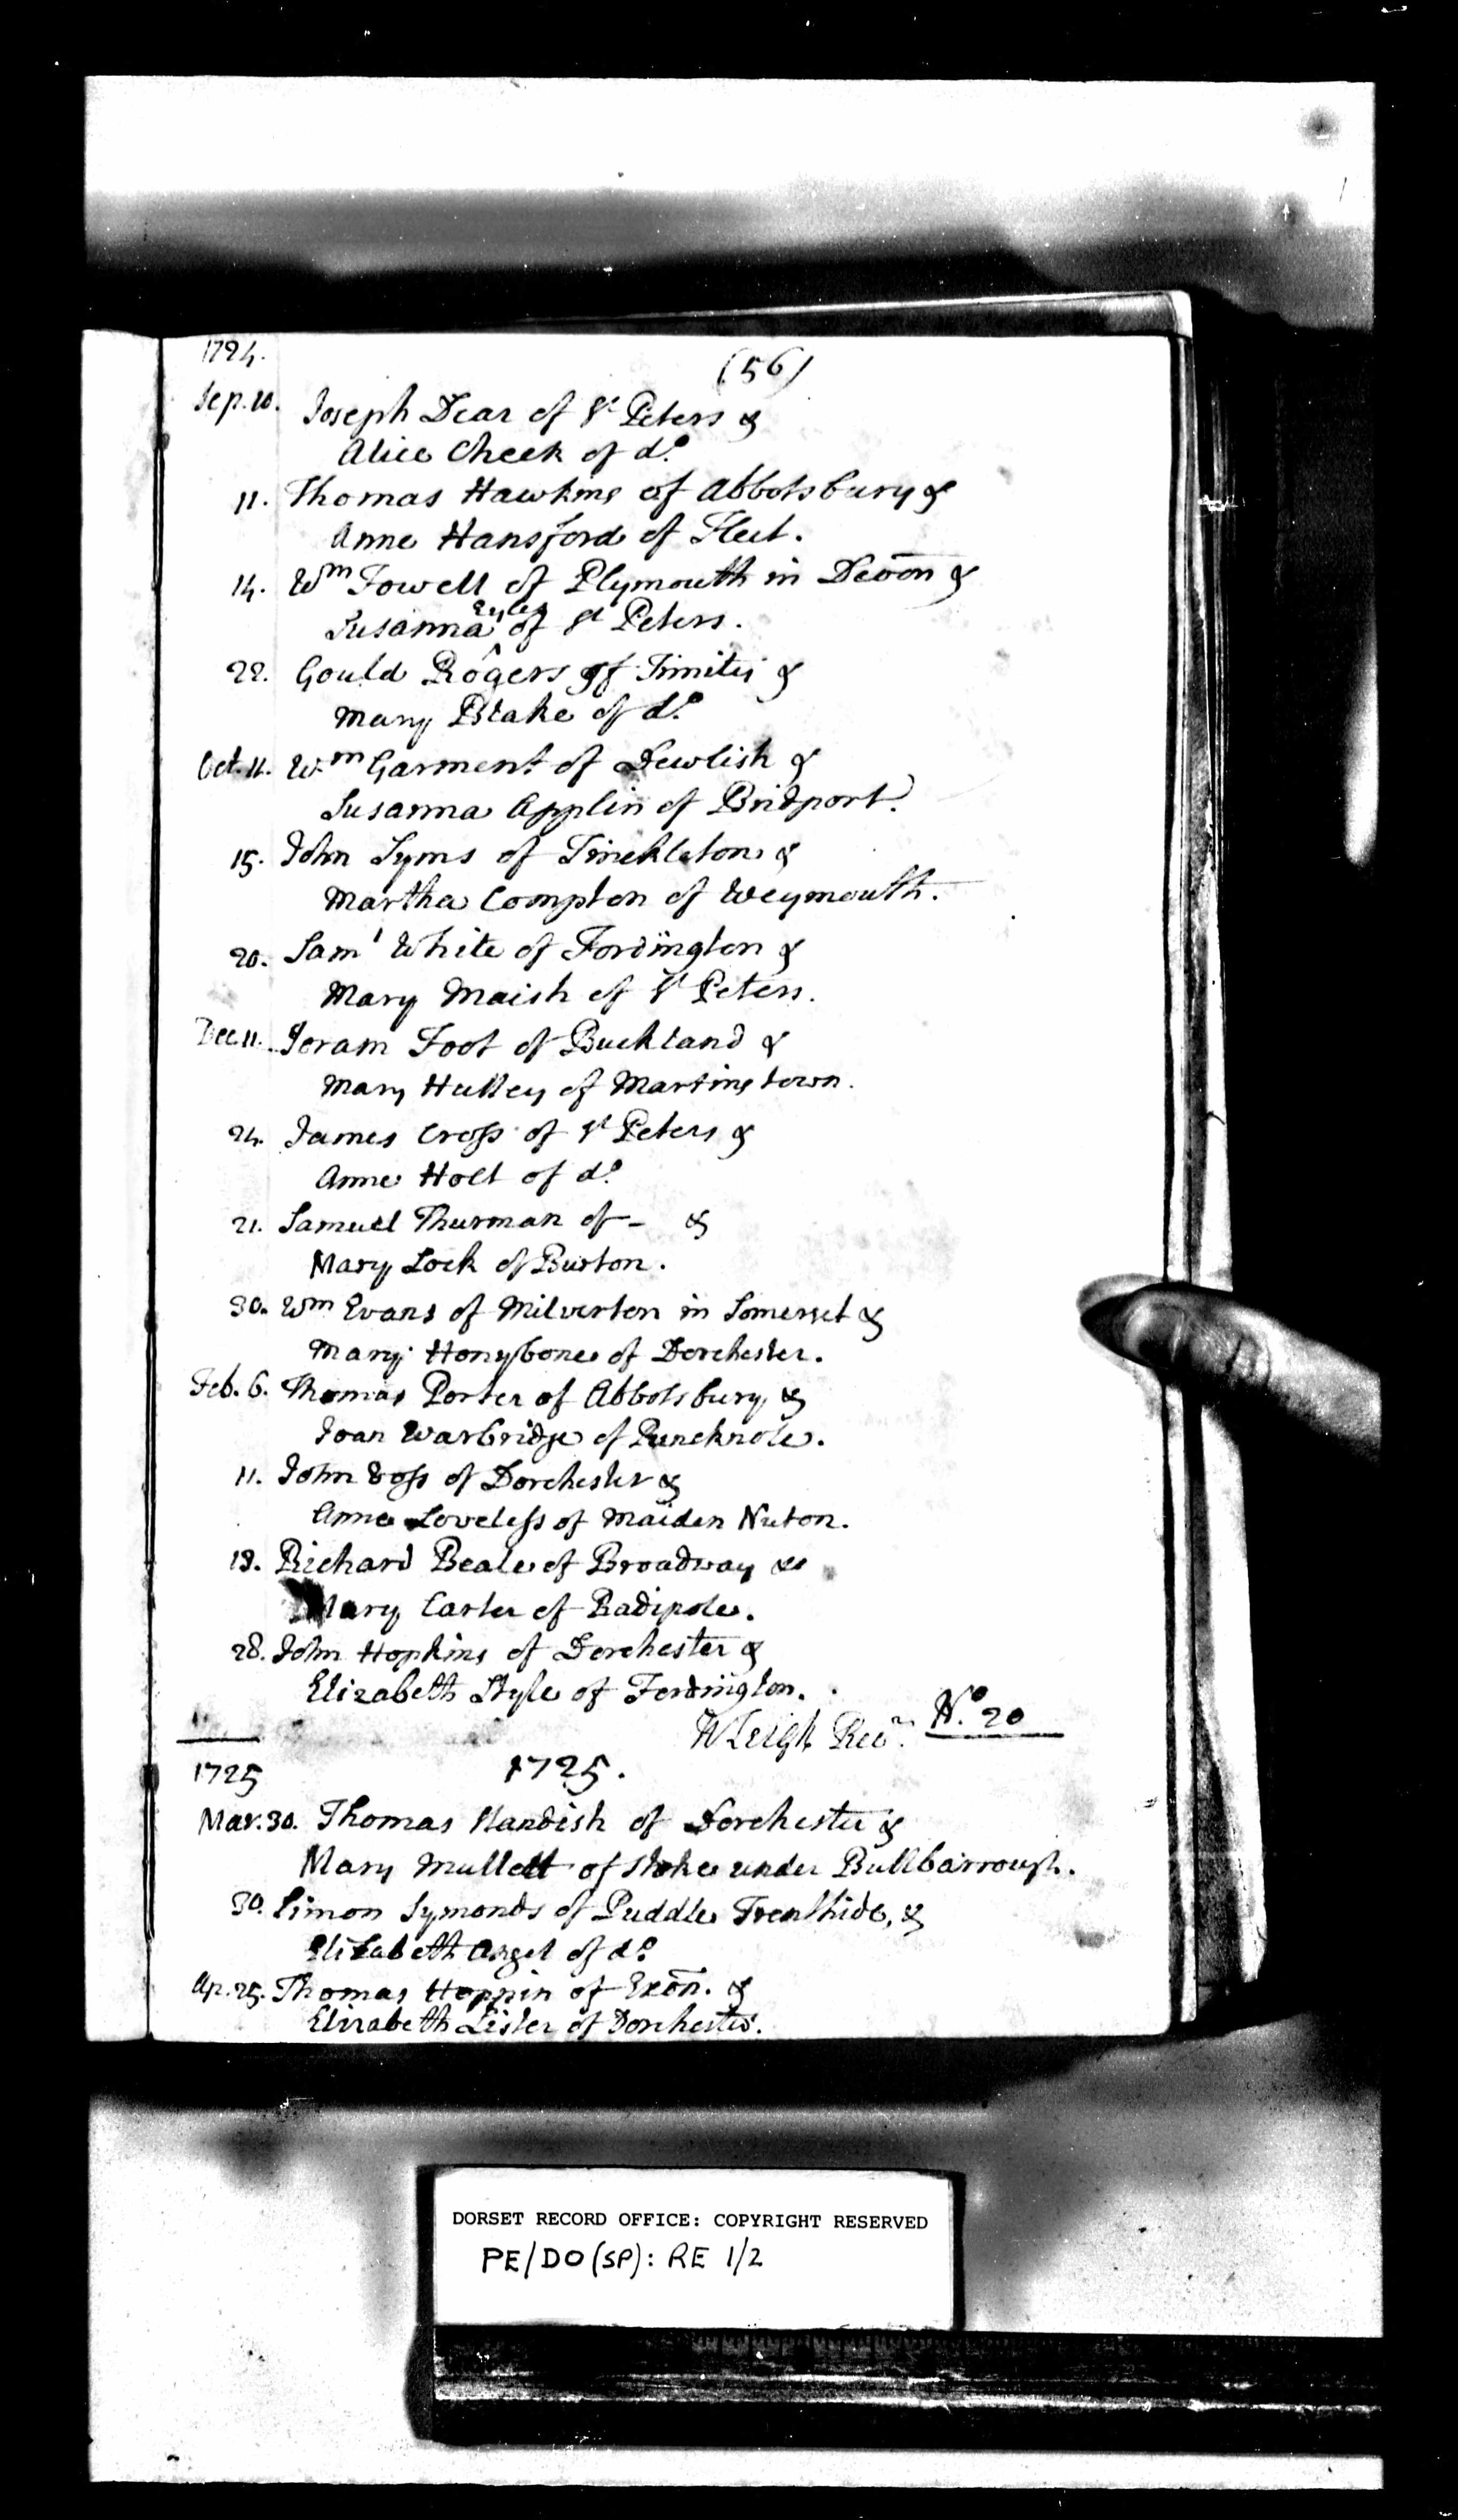 1724.
(56)
Sep. 10. Joseph Dear of St Peters &
Alice Cheek of do.
11. Thomas Hawkins of Abbotsbury &
Anne Hansford of Fleet.
14. Wm Fowell of Plymouth in Devon &
Eyles
Susanna ^ of St Peters.
22. Gould Rogers of Trinity &
Mary Blake of do.
Oct. 11. Wm Garment of Dewlish &
Susanna Applin of Bridport.
15. John Syms of Tinckleton &
Martha Compton of Weymouth.
20. Saml White of Fordington &
Mary Maish of St Peters.
Dec. 11. Joram Foot of Buckland &
Mary Hussey of Martinstown.
24. James Cross of St Peters &
Anne Holt of do.
21. Samuel Thurman of - &
Mary Lock of Burton.
30. Wm Evans of Milverton in Somerset &
Mary Honybone of Dorchester.
Feb. 6. Thomas Porter of Abbotsbury &
Joan Warbridge of Puncknole.
11. John Voss of Dorchester &
Anne Loveless of Maiden Nuton.
18. Richard Beale of Broadway &
Mary Carter of Radipole.
28. John Hopkins of Dorchester &
Elizabeth Style of Fordington.
W Leigh Recr. No. 20
1725 1725.
Mar. 30. Thomas Standish of Dorchester &
Mary Mullett of Stoke under Bullbarrough.
30. Simon Symonds of Puddle Trenthide, &
Elizabeth Angel of do.
Ap. 25. Thomas Hoppin of Exōn. &
Elizabeth Lister of Dorchester.
DORSET RECORD OFFICE: COPYRIGHT RESERVED
PE/DO(SP): RE 1/2